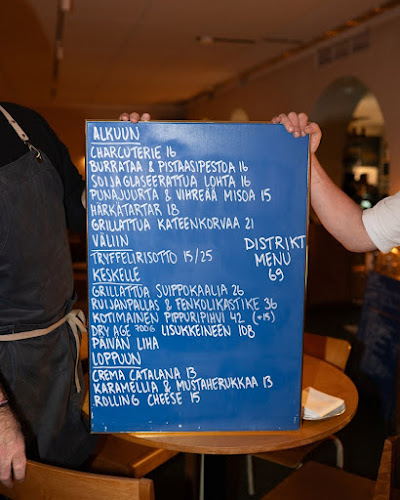 ALKUUN
CHARCUTERIE 16
BURRATAA & PISTAASIPESTOA 16
SOIJAGLASEERATTUA LOHTA 16
PUNAJUURTA & VIHREÄÄ MISOA 15
HÄRKÄTARTAR 18
GRILLATTUA KATEENKORVAA 21
VÄLIIN
TRYFFELIRISOTTO 15/25
KESKELLE
GRILLATTUA SUIPPOKAALIA 26
RUIJANPALLAS & FENKOLIKASTIKE 36
KOTIMAINEN PIPPURIPIHVI 42 (+15)
DRY AGE 700G LISUKKEINEEN 108
PÄIVÄN LIHA
LOPPUUN
CREMA CATALANA 13
KARAMELLIA & MUSTAHERUKKAA 13
ROLLING CHEESE 15
DISTRIKT
MENU
69